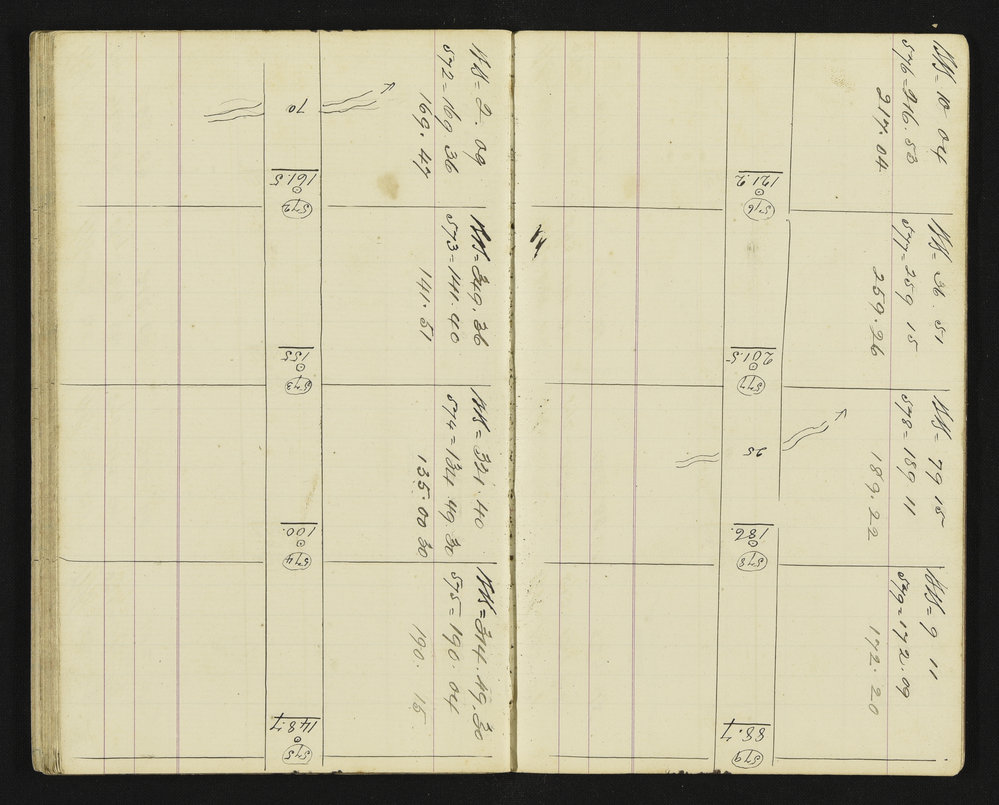 BS = 2. 09
572 = 169 36
169. 47
70
161.5
572
BS = 349. 36
573 = 141. 40
141. 51
155
573
BS = 321. 40
574 = 134. 49 30
135. 00 30
100.
574
BS = 314. 49. 30
575 = 190. 04
190. 15
148.7
575
BS = 10 04
576 = 216. 50
217. 04
121.2
576
BS = 36. 51
577 = 259 15
259. 26
201.5
577
BS = 79 15
578 = 189 11
189. 22
25
186.
578
BS = 9 11
579 = 172. 09
172. 20
88.7
579